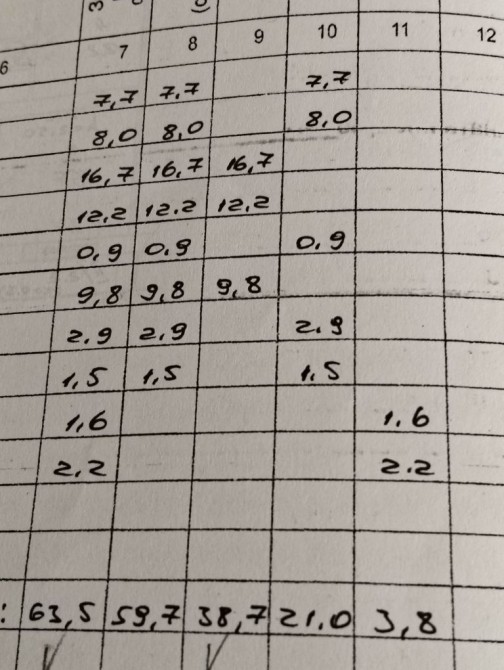 6 7 8 9 10 11 12
7,7 7,7 7,7
8,0 8,0 8,0
16,7 16,7 16,7
12,2 12.2 12,2
0,9 0,9 0,9
9,8 9,8 9,8
2,9 2,9 2,9
1,5 1,5 1,5
1,6 1,6
2,2 2.2
: 63,5 59,7 38,7 21.0 3,8